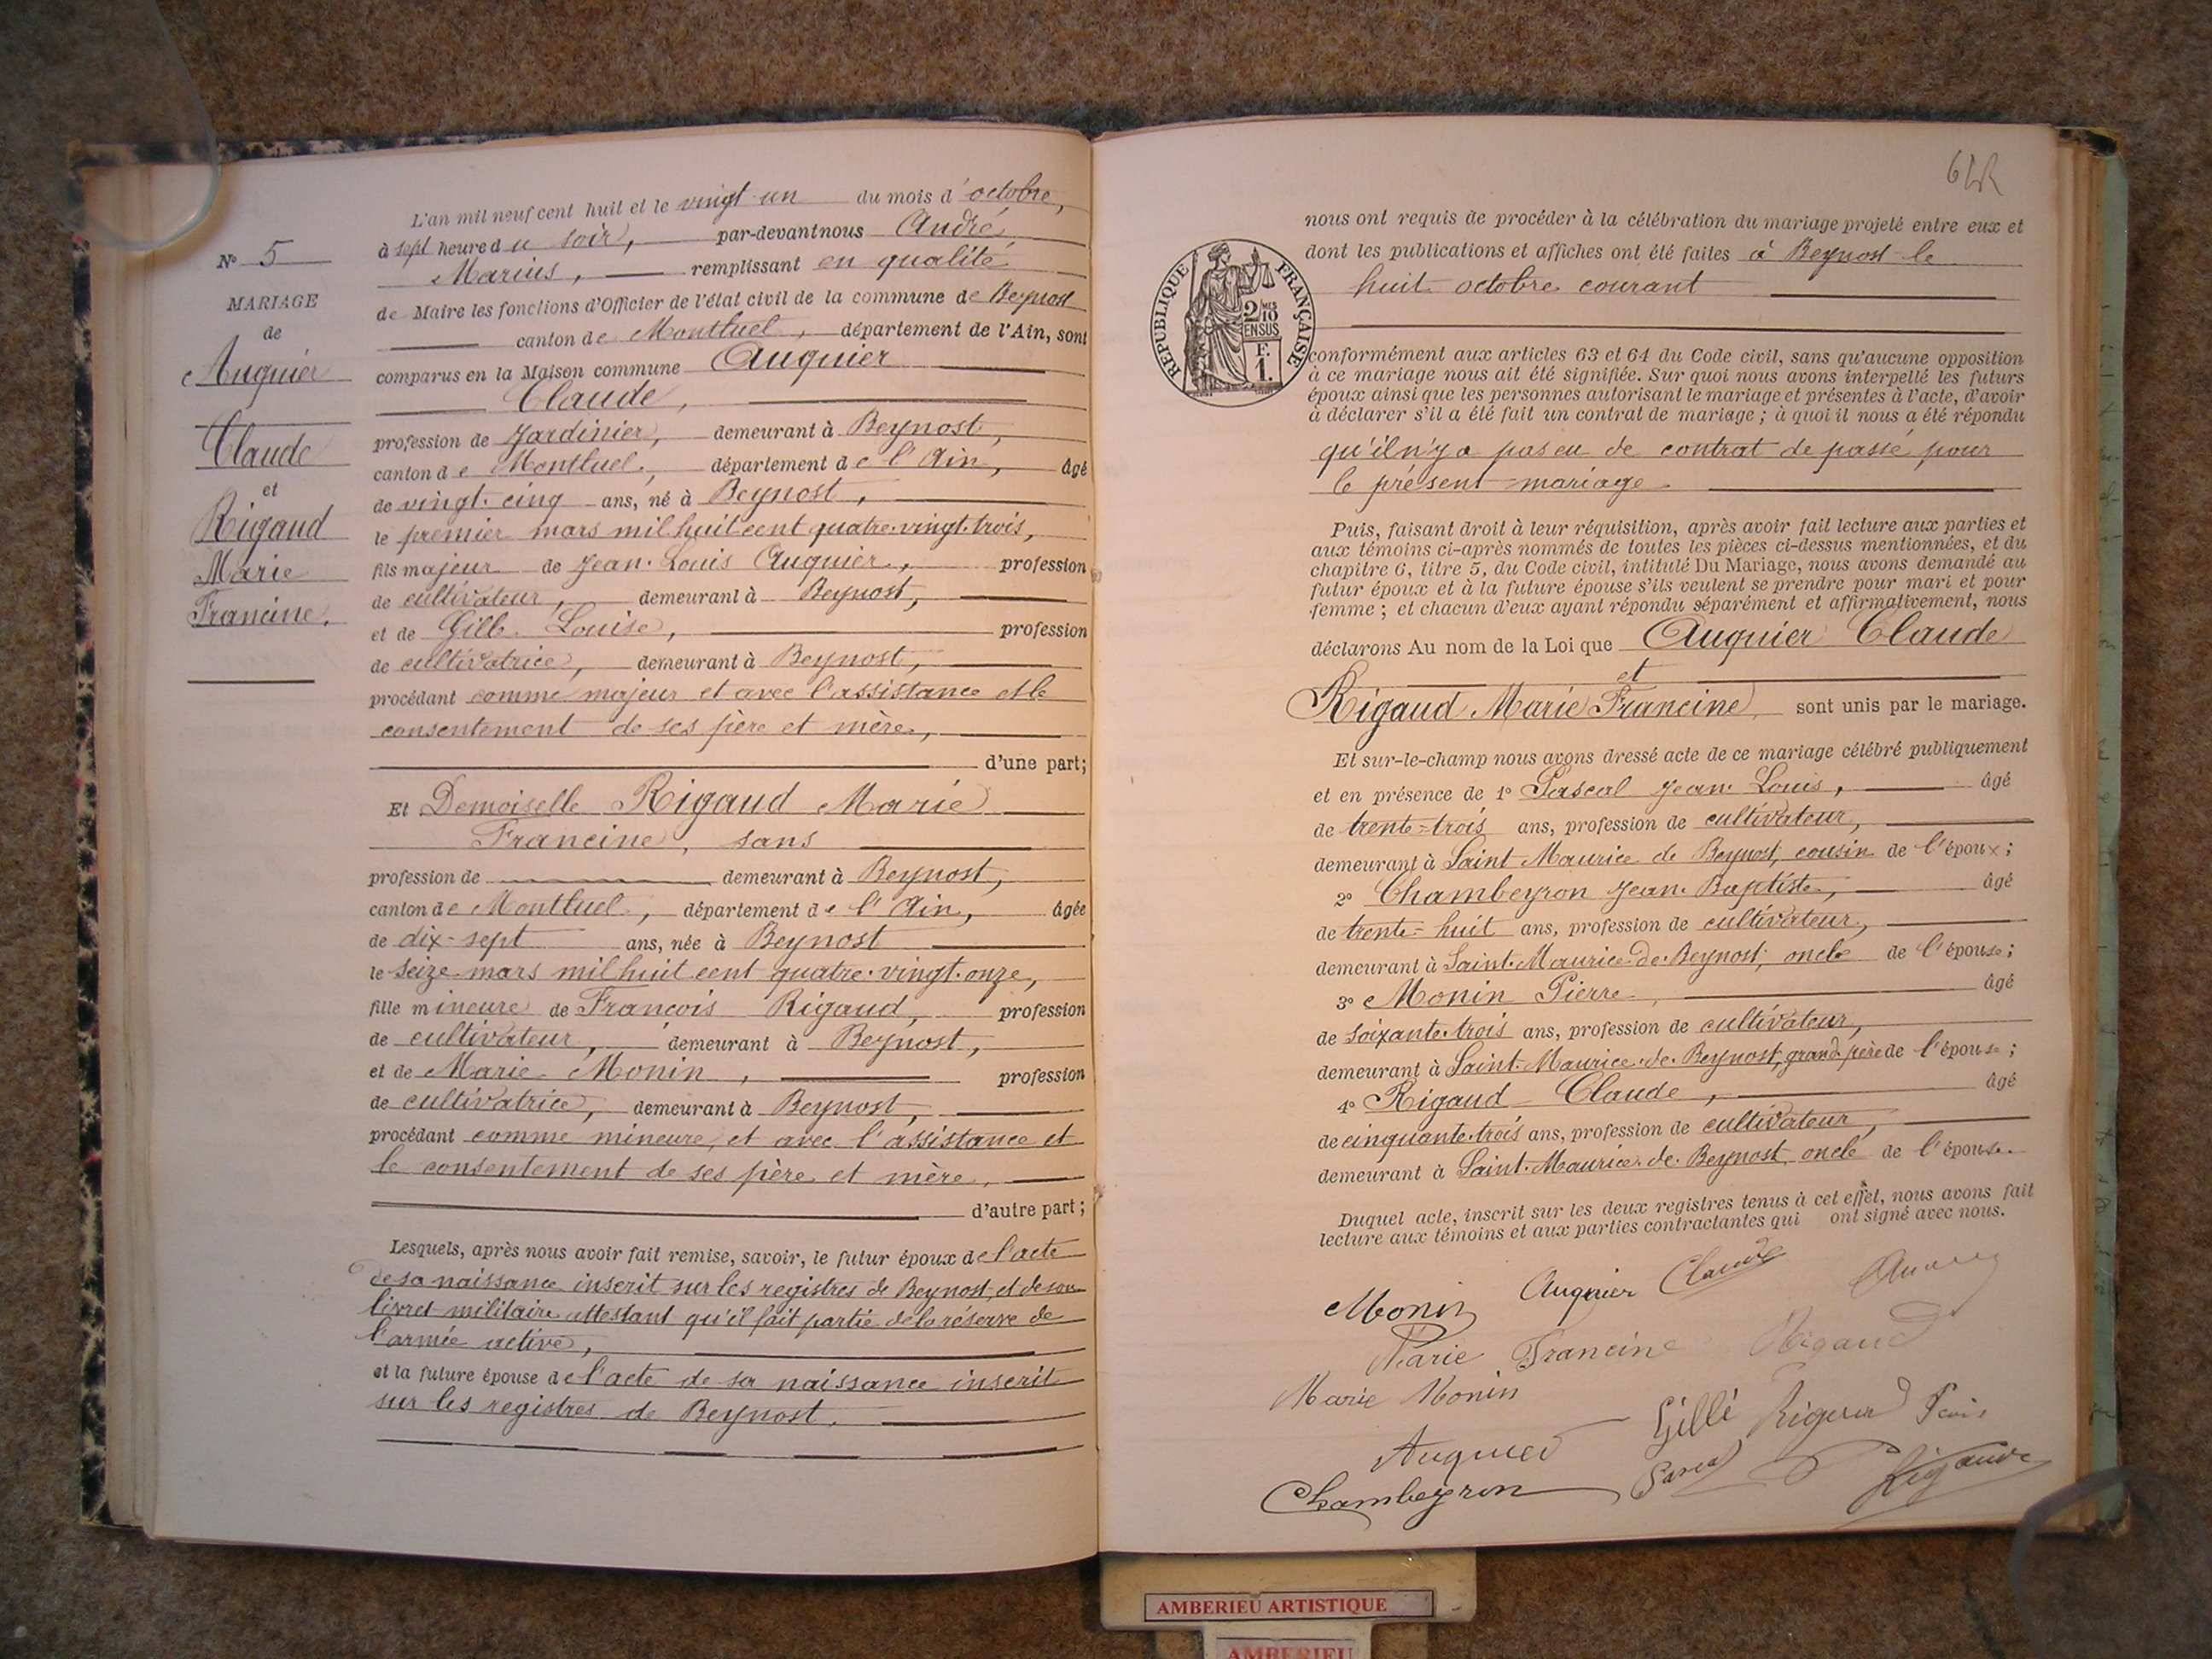 L'an mil neuf cent huit et le vingt un du mois d'octobre,
à sept heure du soir, par-devant nous André
Marius, remplissant en qualité
de Maire les fonctions d'Officier de l'état civil de la commune de Beynost
canton de Montluel, département de l'Ain, sont
comparus en la Maison commune Auquier
Claude,
profession de Jardinier, demeurant à Beynost,
canton de Montluel, département de l'Ain, âgé
de vingt-cinq ans, né à Beynost,
le premier mars mil huit cent quatre-vingt-trois,
fils majeur de Jean-Louis Auquier, profession
de cultivateur, demeurant à Beynost,
et de Gille Louise, profession
de cultivatrice, demeurant à Beynost,
procédant comme majeur et avec l'assistance et le
consentement de ses père et mère,
d'une part;
Et Demoiselle Rigaud Marie
Francine, sans
profession de demeurant à Beynost,
canton de Montluel, département de l'Ain, âgée
de dix-sept ans, née à Beynost
le seize mars mil huit cent quatre-vingt-onze,
fille mineure de François Rigaud, profession
de cultivateur, demeurant à Beynost,
et de Marie Monin, profession
de cultivatrice, demeurant à Beynost,
procédant comme mineure, et avec l'assistance et
le consentement de ses père et mère,
d'autre part;
Lesquels, après nous avoir fait remise, savoir, le futur époux de l'acte
de sa naissance inscrit sur les registres de Beynost, et de son
livret militaire attestant qu'il fait partie de la réserve de
l'armée active,
et la future épouse de l'acte de sa naissance inscrit
sur les registres de Beynost.
N° 5
MARIAGE
de
Auquier
Claude
et
Rigaud
Marie
Francine.
nous ont requis de procéder à la célébration du mariage projeté entre eux et
dont les publications et affiches ont été faites à Beynost le
huit octobre courant
REPUBLIQUE FRANÇAISE
2/MES
10
EN SUS
F.
1.
conformément aux articles 63 et 64 du Code civil, sans qu'aucune opposition
à ce mariage nous ait été signifiée. Sur quoi nous avons interpellé les futurs
époux ainsi que les personnes autorisant le mariage et présentes à l'acte, d'avoir
à déclarer s'il a été fait un contrat de mariage; à quoi il nous a été répondu
qu'il n'y a pas eu de contrat de passé pour
le présent mariage.
Puis, faisant droit à leur réquisition, après avoir fait lecture aux parties et
aux témoins ci-après nommés de toutes les pièces ci-dessus mentionnées, et du
chapitre 6, titre 5, du Code civil, intitulé Du Mariage, nous avons demandé au
futur époux et à la future épouse s'ils veulent se prendre pour mari et pour
femme; et chacun d'eux ayant répondu séparément et affirmativement, nous
déclarons Au nom de la Loi que Auquier Claude
et
Rigaud Marie Francine sont unis par le mariage.
Et sur-le-champ nous avons dressé acte de ce mariage célébré publiquement
et en présence de 1° Pascal Jean-Louis, âgé
de trente-trois ans, profession de cultivateur,
demeurant à Saint Maurice de Beynost, cousin de l'époux;
2° Chambeyron Jean-Baptiste, âgé
de trente-huit ans, profession de cultivateur,
demeurant à Saint-Maurice-de-Beynost, oncle de l'épouse;
3° Monin Pierre, âgé
de soixante-trois ans, profession de cultivateur,
demeurant à Saint-Maurice-de-Beynost, grand-père de l'épouse;
4° Rigaud Claude, âgé
de cinquante-trois ans, profession de cultivateur,
demeurant à Saint-Maurice-de-Beynost oncle de l'épouse.
Duquel acte, inscrit sur les deux registres tenus à cet effet, nous avons fait
lecture aux témoins et aux parties contractantes qui ont signé avec nous.
Monin Auquier Claude
Marie Francine Rigaud
Marie Monin
Gille Rigaud
Auquier
Chambeyron Pascal Rigaud
AMBERIEU ARTISTIQUE
AMBERIEU